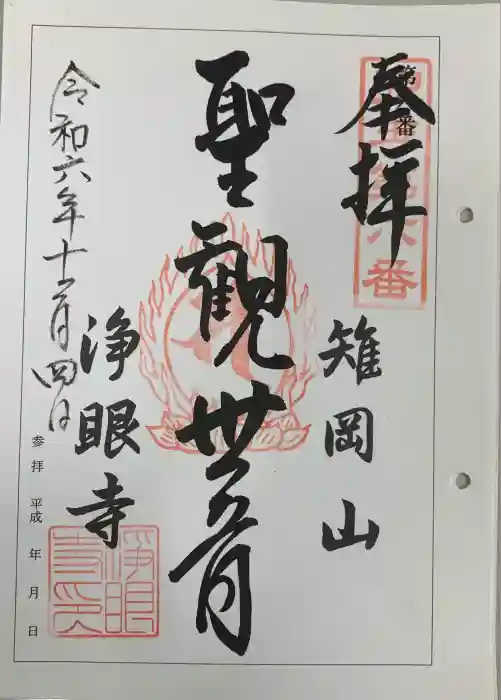 奉拝
第 番
六番
雉岡山
聖観世音
浄眼寺
浄眼寺印
令和六年十二月四日
参拝 平成 年 月 日